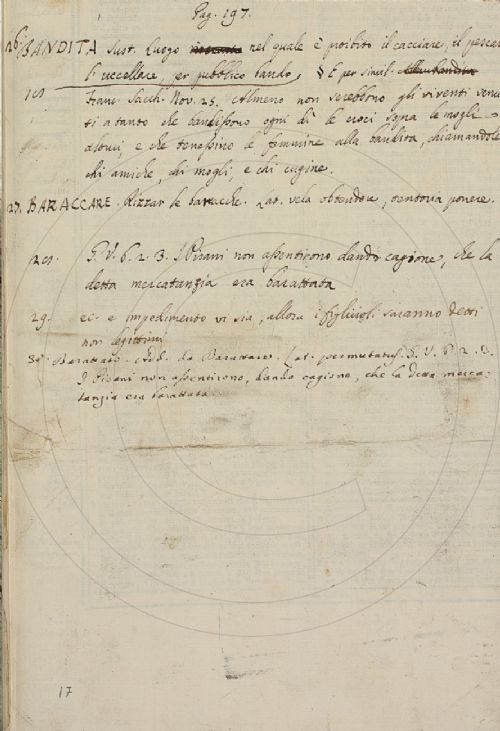 Pag. 197.
26. BANDITA Sust. Luogo nel quale è proibito il cacciare, il pescare
l'uccellare, per pubblico bando, § E per simil.
Franc. Sacch. Nov. 25. Almeno non serebbono gli viventi venu
ti a tanto che bandissono ogni dì le croci sopra le mogli
altrui, e che tenessino le femmine alla bandita, chiamandole
chi amiche, chi mogli, e chi cugine.
27. BARACCARE. Rizzar le baracche. Lat. vela obtendere, tentoria ponere.
28. G. V. 6. 2. 3. I Pisani non assentirono dando cagione, che la
detta mercatanzia era barattata
29. ec. e impedimento vi sia, allora i figliuoli saranno detti
non legittimi
30. Barattato. Add. da Barattare. Lat. permutatus. G. V. 6. 2. 3.
I Pisani non assentirono, dando cagione, che la detta merca-
tanzia era barattata
17